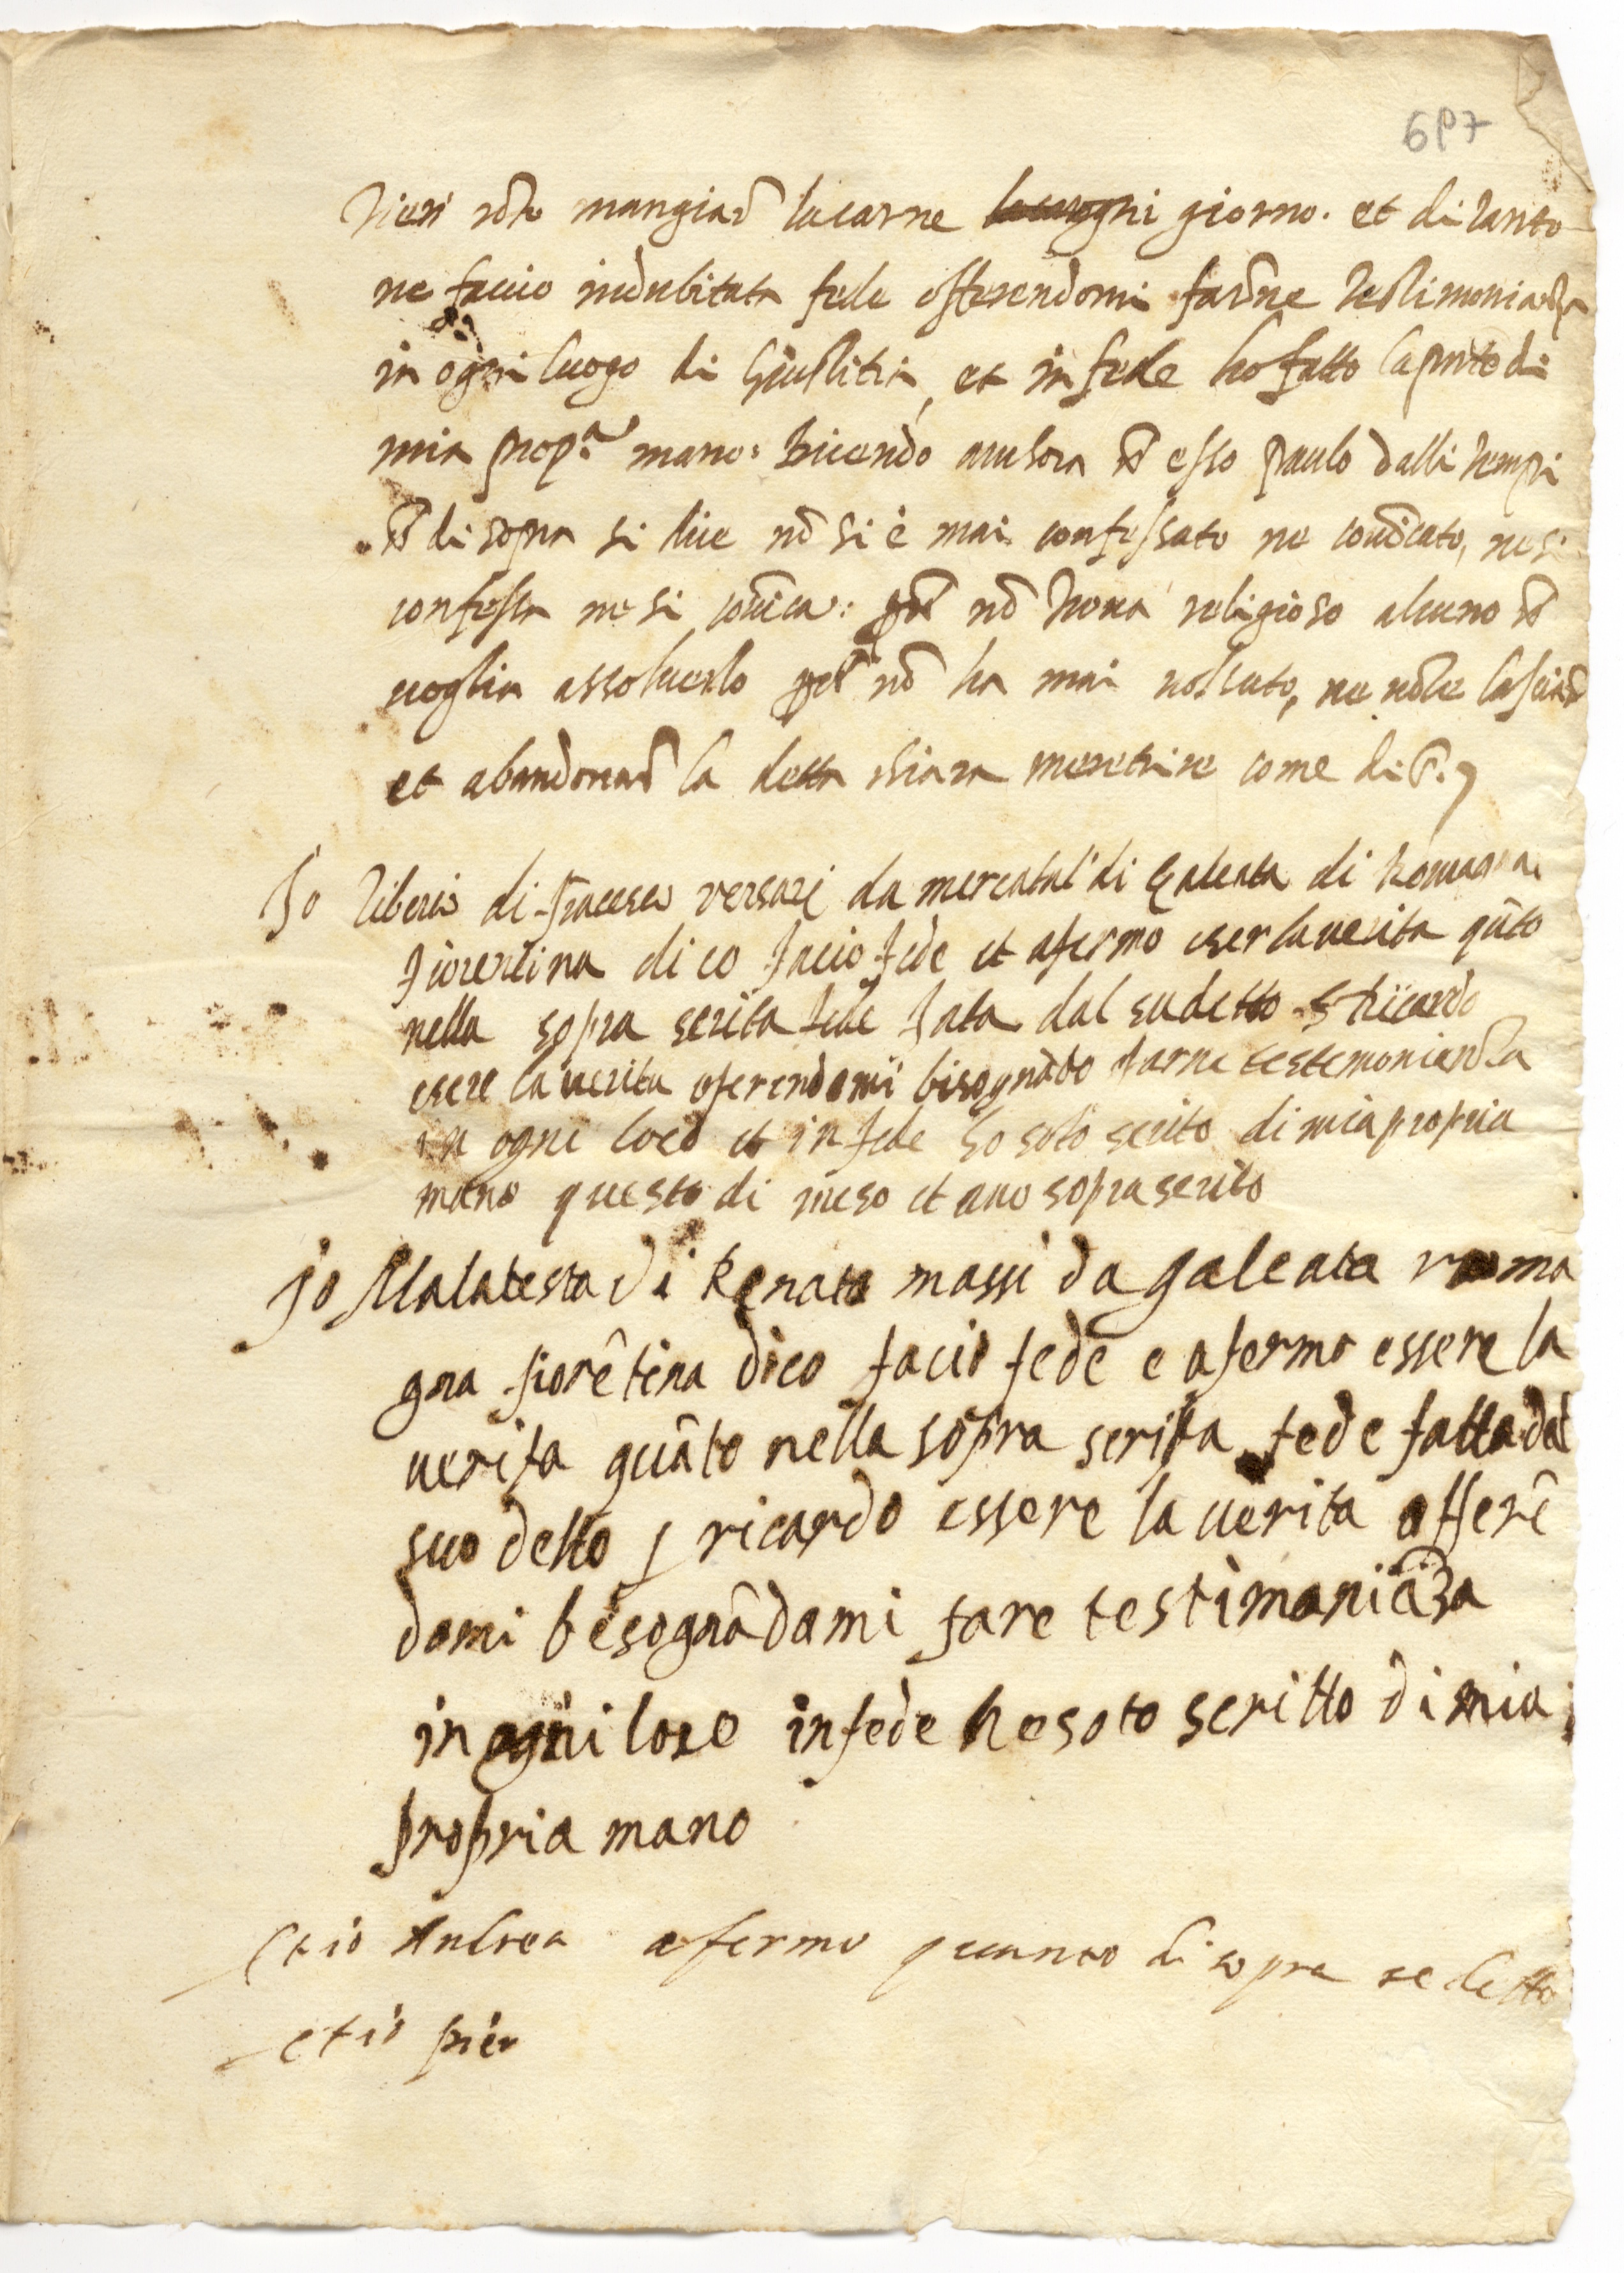 697
mangiar̃ la carne ogni giorno. et di tanto
ne faccio indubitata fede offerendomi farne testimonianza
in ogni luogo di Giustitia, et in fede ho fatto la pñte di
mia prop.a mano: Dicendo anchora ch̃ esso Paulo dalli tempi
ch̃ di sopra si dice nõ si è mai confessato ne comũicato, ne si
confessa ne si comũica: p̃ch̃ nõ trova religioso alcuno ch̃
voglia assolverlo p̃ch̃ nõ ha mai voluto, ne vole lasciar̃
et abandonar̃ la detta chiara meretrice come di s.a
Io Tiberio di francesco versari da mercatal di Galeata di Romagna
fiorentina dico facio fede et afermo eser la verita quãto
nella sopra scrita fede fata dal sudetto S ricardo
esere la verita oferendomi bisognãdo farne testemonianza
in ogni loco et in fede ho soto scrito di mia propria
mano questo di meso et ano sopra scrito
Jo Malatesta di Renato massi da galeata roma
gna fiorẽtina dico facio fede e afermo essere la
verita quãto nella sopra scrita fede fatta dal
suo detto s ricardo essere la verita offerẽ
domi besognãdomi fare testimoniãza
in ogni loco in fede ho soto scritto di mia
propria mano
Et io Andrea afermo quanto di sopra se detto
et io pier